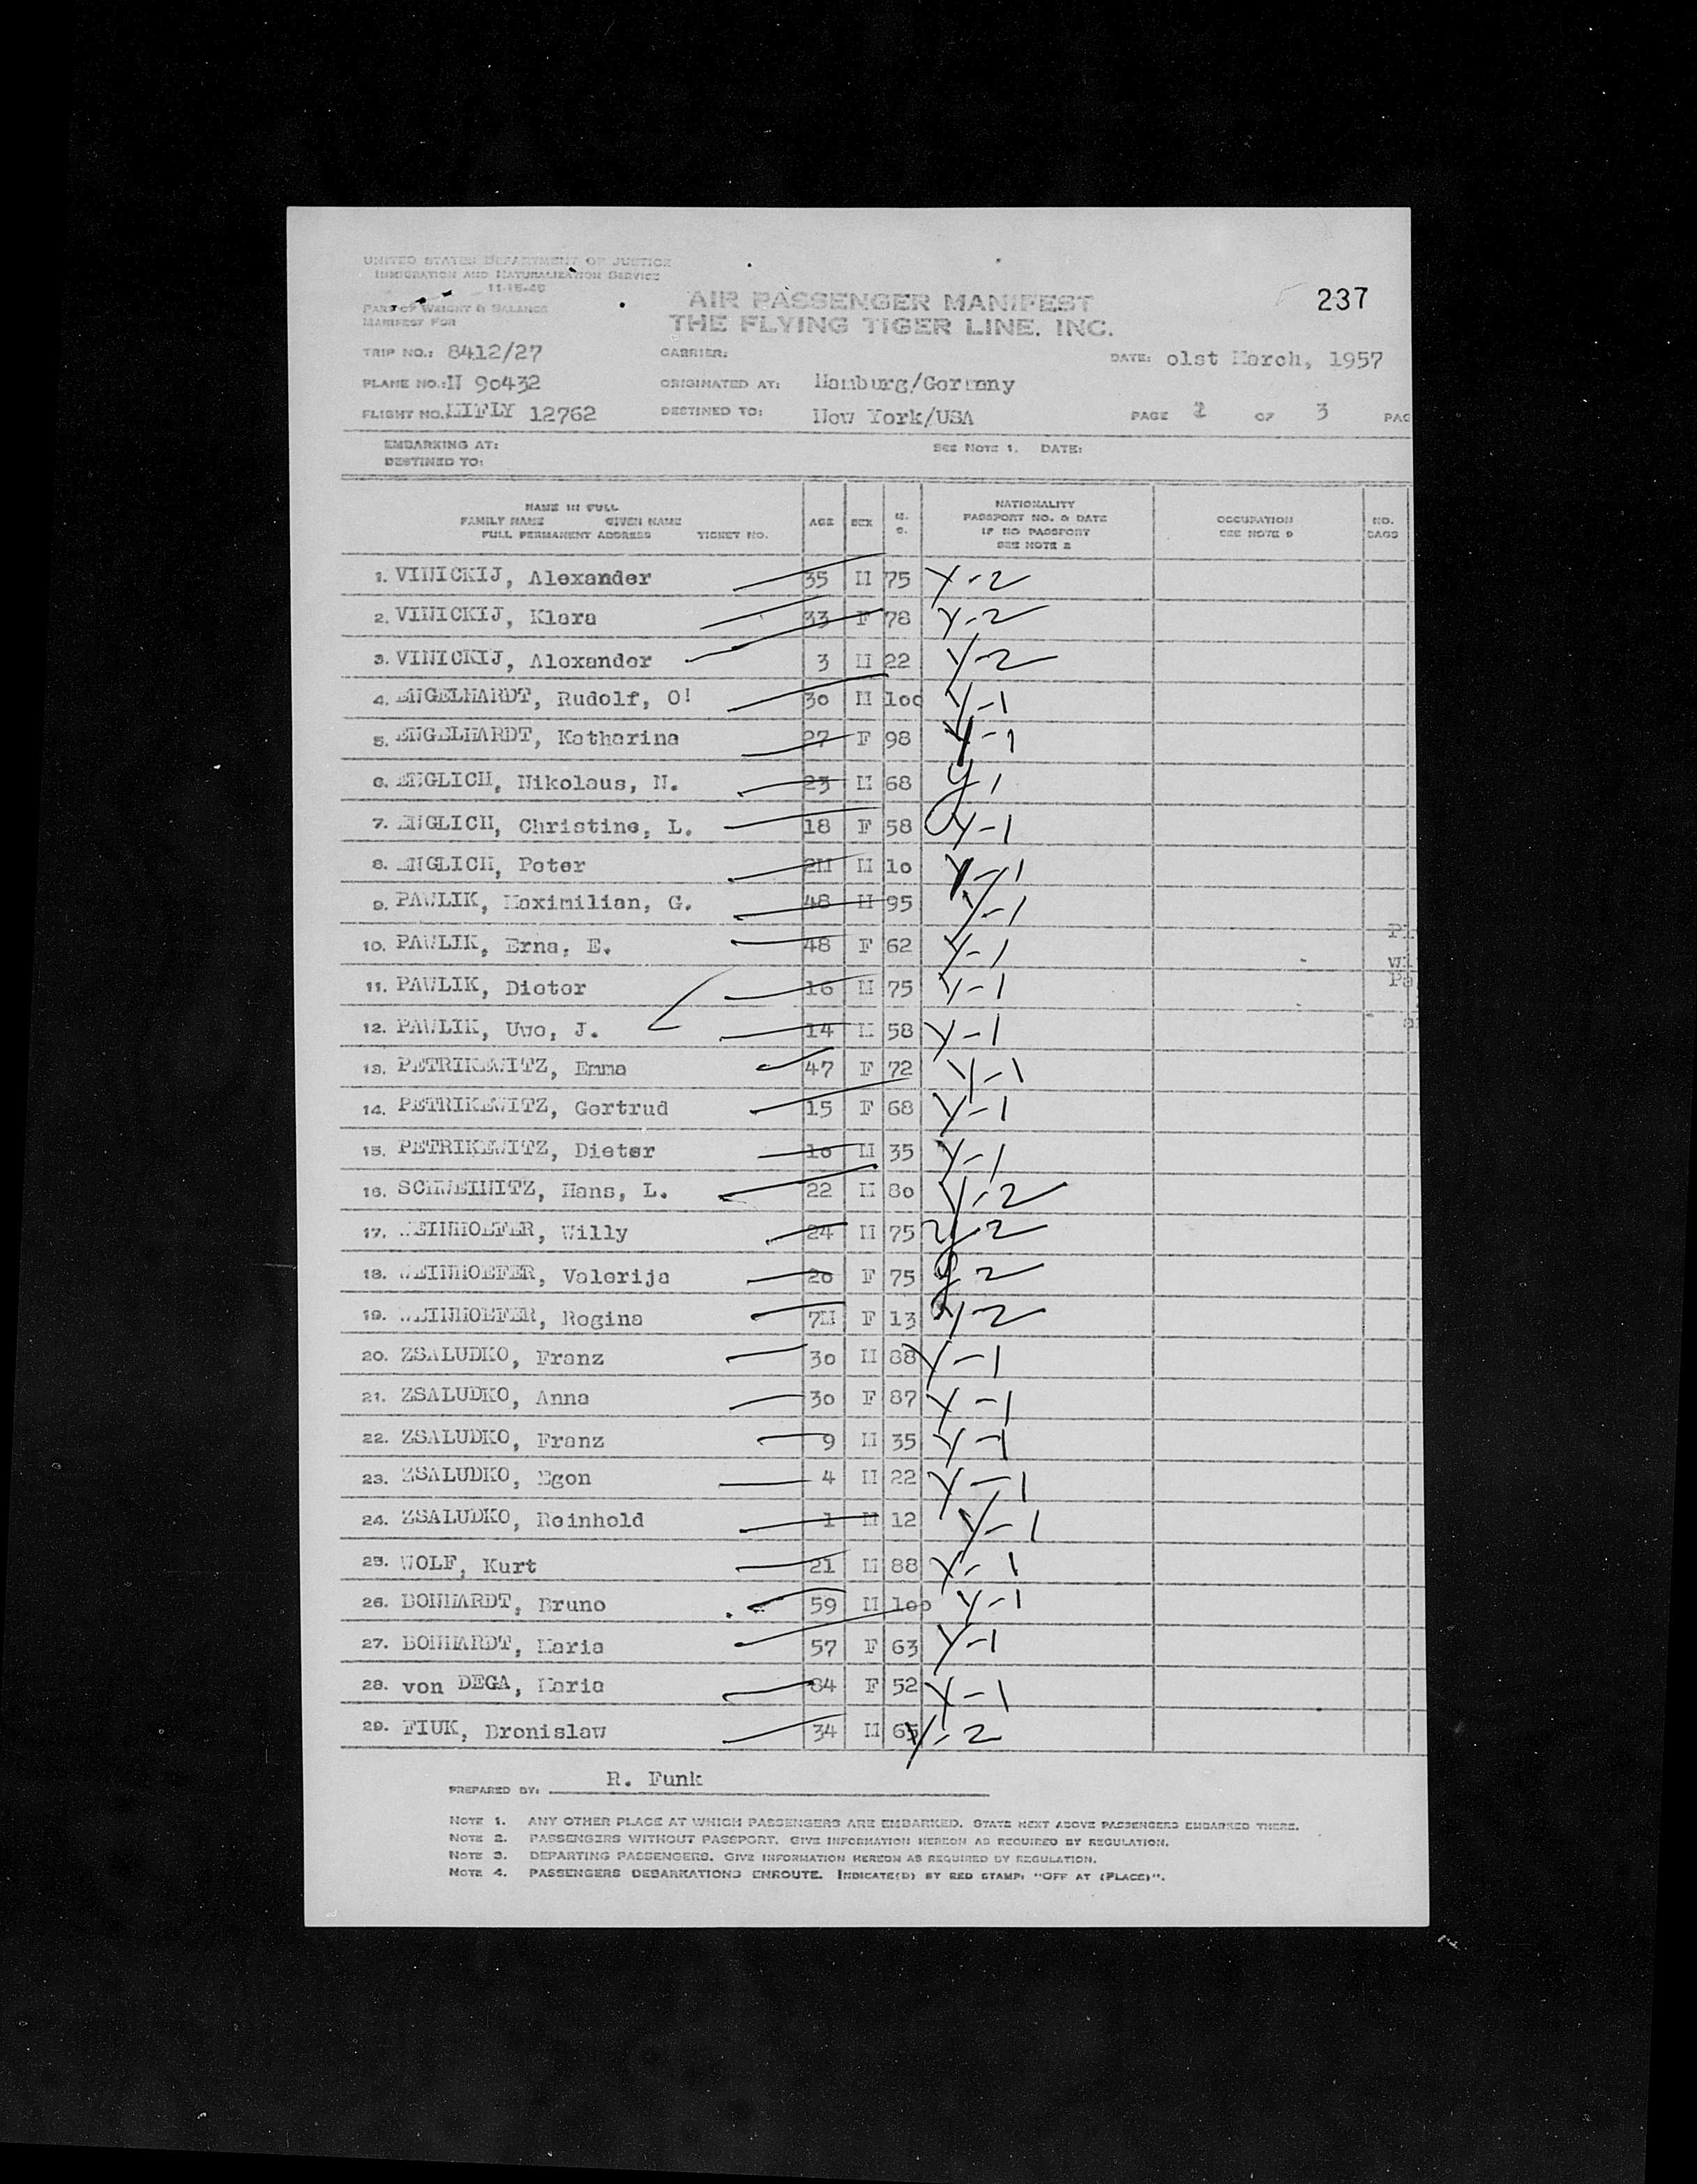 UNITED STATES DEPARTMENT OF JUSTICE
IMMIGRATION AND NATURALIZATION SERVICE
11-15-46
PART OF WEIGHT & BALANCE
MANIFEST FOR
AIR PASSENGER MANIFEST
THE FLYING TIGER LINE. INC.
237
TRIP NO.: 8412/27 CARRIER: DATE: o1st March, 1957
PLANE NO.: N 90432 ORIGINATED AT: Hamburg/Germany
FLIGHT NO. MIFLY 12762 DESTINED TO: New York/USA PAGE 2 OF 3 PAG
EMBARKING AT: SEE NOTE 1. DATE:
DESTINED TO:
NAME IN FULL
FAMILY NAME GIVEN NAME
FULL PERMANENT ADDRESS TICKET NO. AGE SEX M. S. NATIONALITY PASSPORT NO. & DATE IF NO PASSPORT SEE NOTE 2 OCCUPATION SEE NOTE 3 NO. BAGS
1. VINICKIJ, Alexander 35 M 75 Y-2
2. VINICKIJ, Klara 33 F 78 Y-2
3. VINICKIJ, Alexander 3 M 22 Y-2
4. ENGELHARDT, Rudolf, O! 30 M 100 Y-1
5. ENGELHARDT, Katharina 27 F 98 Y-1
6. ENGLICH, Nikolaus, N. 23 M 68 Y-1
7. ENGLICH, Christine, L. 18 F 58 Y-1
8. ENGLICH, Peter 2M M 10 Y-1
9. PAWLIK, Maximilian, G. 48 M 95 Y-1
10. PAWLIK, Erna, E. 48 F 62 Y-1
11. PAWLIK, Dieter 16 M 75 Y-1
12. PAWLIK, Uwe, J. 14 M 58 Y-1
13. PETRIKEWITZ, Emma 47 F 72 Y-1
14. PETRIKEWITZ, Gertrud 15 F 68 Y-1
15. PETRIKEWITZ, Dieter 10 M 35 Y-1
16. SCHWEINITZ, Hans, L. 22 M 80 Y-2
17. WEINHOEFER, Willy 24 M 75 Y-2
18. WEINHOEFER, Valerija 20 F 75 Y-2
19. WEINHOEFER, Regina 7M F 13 Y-2
20. ZSALUDKO, Franz 30 M 88 Y-1
21. ZSALUDKO, Anna 30 F 87 Y-1
22. ZSALUDKO, Franz 9 M 35 Y-1
23. ZSALUDKO, Egon 4 M 22 Y-1
24. ZSALUDKO, Reinhold 1 M 12 Y-1
25. WOLF, Kurt 21 M 88 Y-1
26. BONHARDT, Bruno 59 M 100 Y-1
27. BONHARDT, Maria 57 F 63 Y-1
28. von DEGA, Maria 84 F 52 Y-1
29. FIUK, Bronislaw 34 M 65 Y-2
PREPARED BY: R. Funk
NOTE 1. ANY OTHER PLACE AT WHICH PASSENGERS ARE EMBARKED. STATE NEXT ABOVE PASSENGERS EMBARKED THERE.
NOTE 2. PASSENGERS WITHOUT PASSPORT. GIVE INFORMATION HEREON AS REQUIRED BY REGULATION.
NOTE 3. DEPARTING PASSENGERS. GIVE INFORMATION HEREON AS REQUIRED BY REGULATION.
NOTE 4. PASSENGERS DEBARKATIONS ENROUTE. INDICATE(D) BY RED STAMP: "OFF AT (PLACE)".